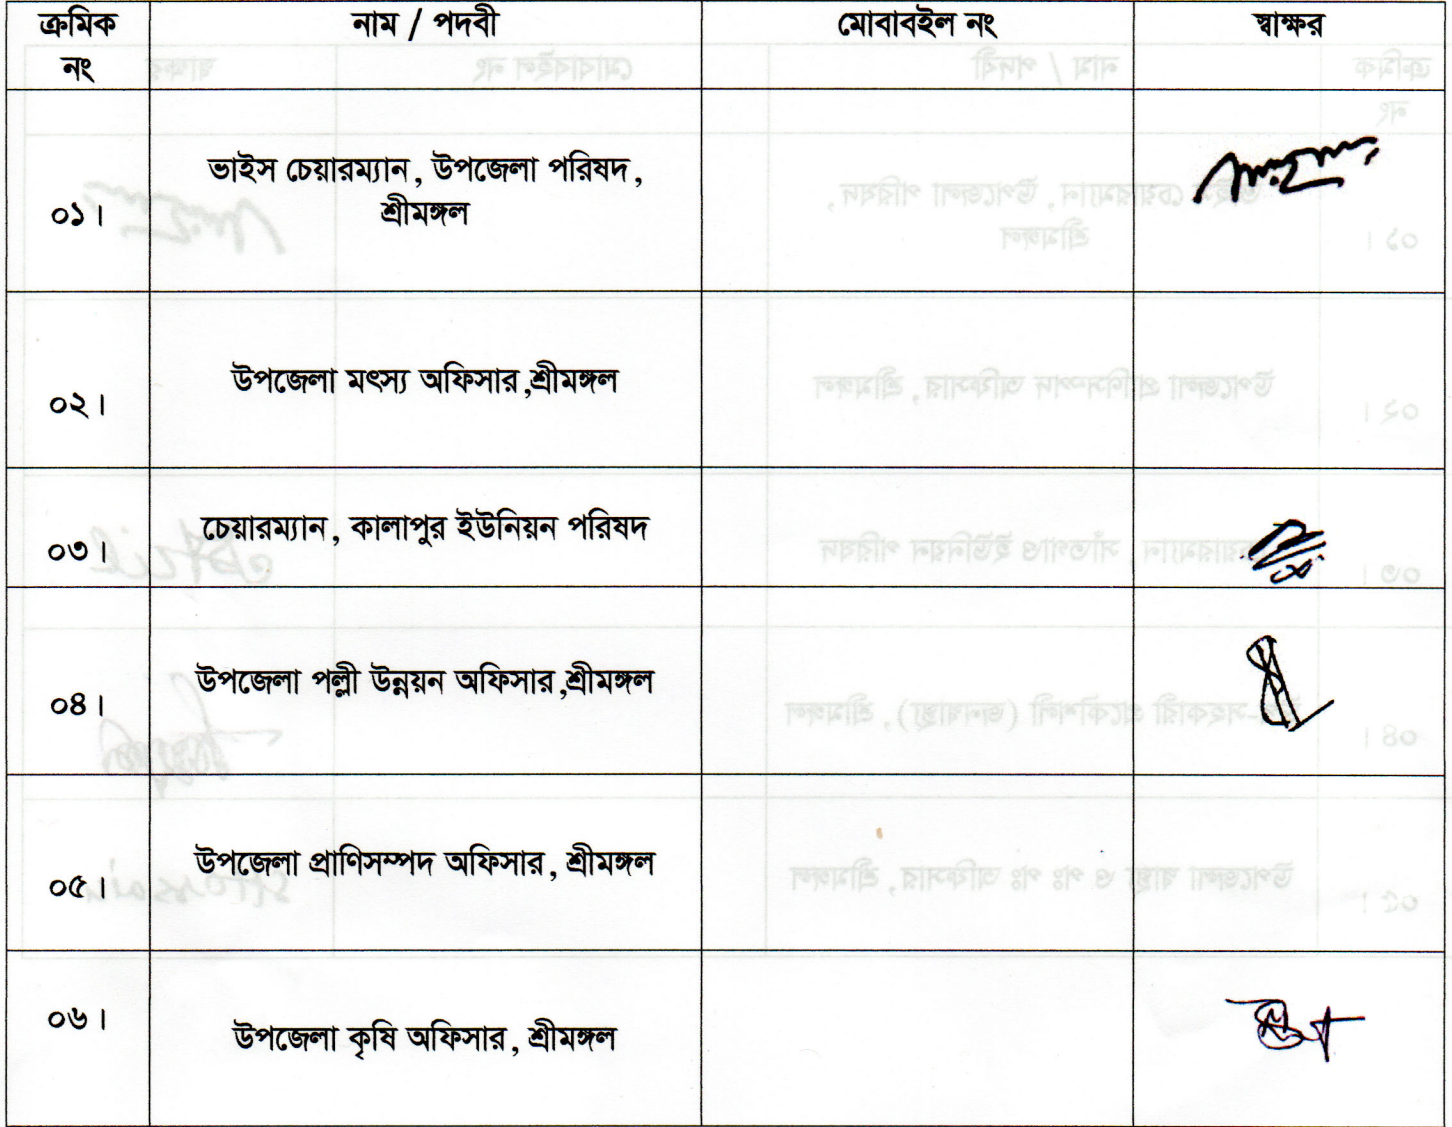 ক্রমিক নং নাম / পদবী মোবাবইল নং স্বাক্ষর
০১। ভাইস চেয়ারম্যান, উপজেলা পরিষদ,
শ্রীমঙ্গল
০২। উপজেলা মৎস্য অফিসার,শ্রীমঙ্গল
০৩। চেয়ারম্যান, কালাপুর ইউনিয়ন পরিষদ
০৪। উপজেলা পল্লী উন্নয়ন অফিসার,শ্রীমঙ্গল
০৫। উপজেলা প্রাণিসম্পদ অফিসার, শ্রীমঙ্গল
০৬। উপজেলা কৃষি অফিসার, শ্রীমঙ্গল